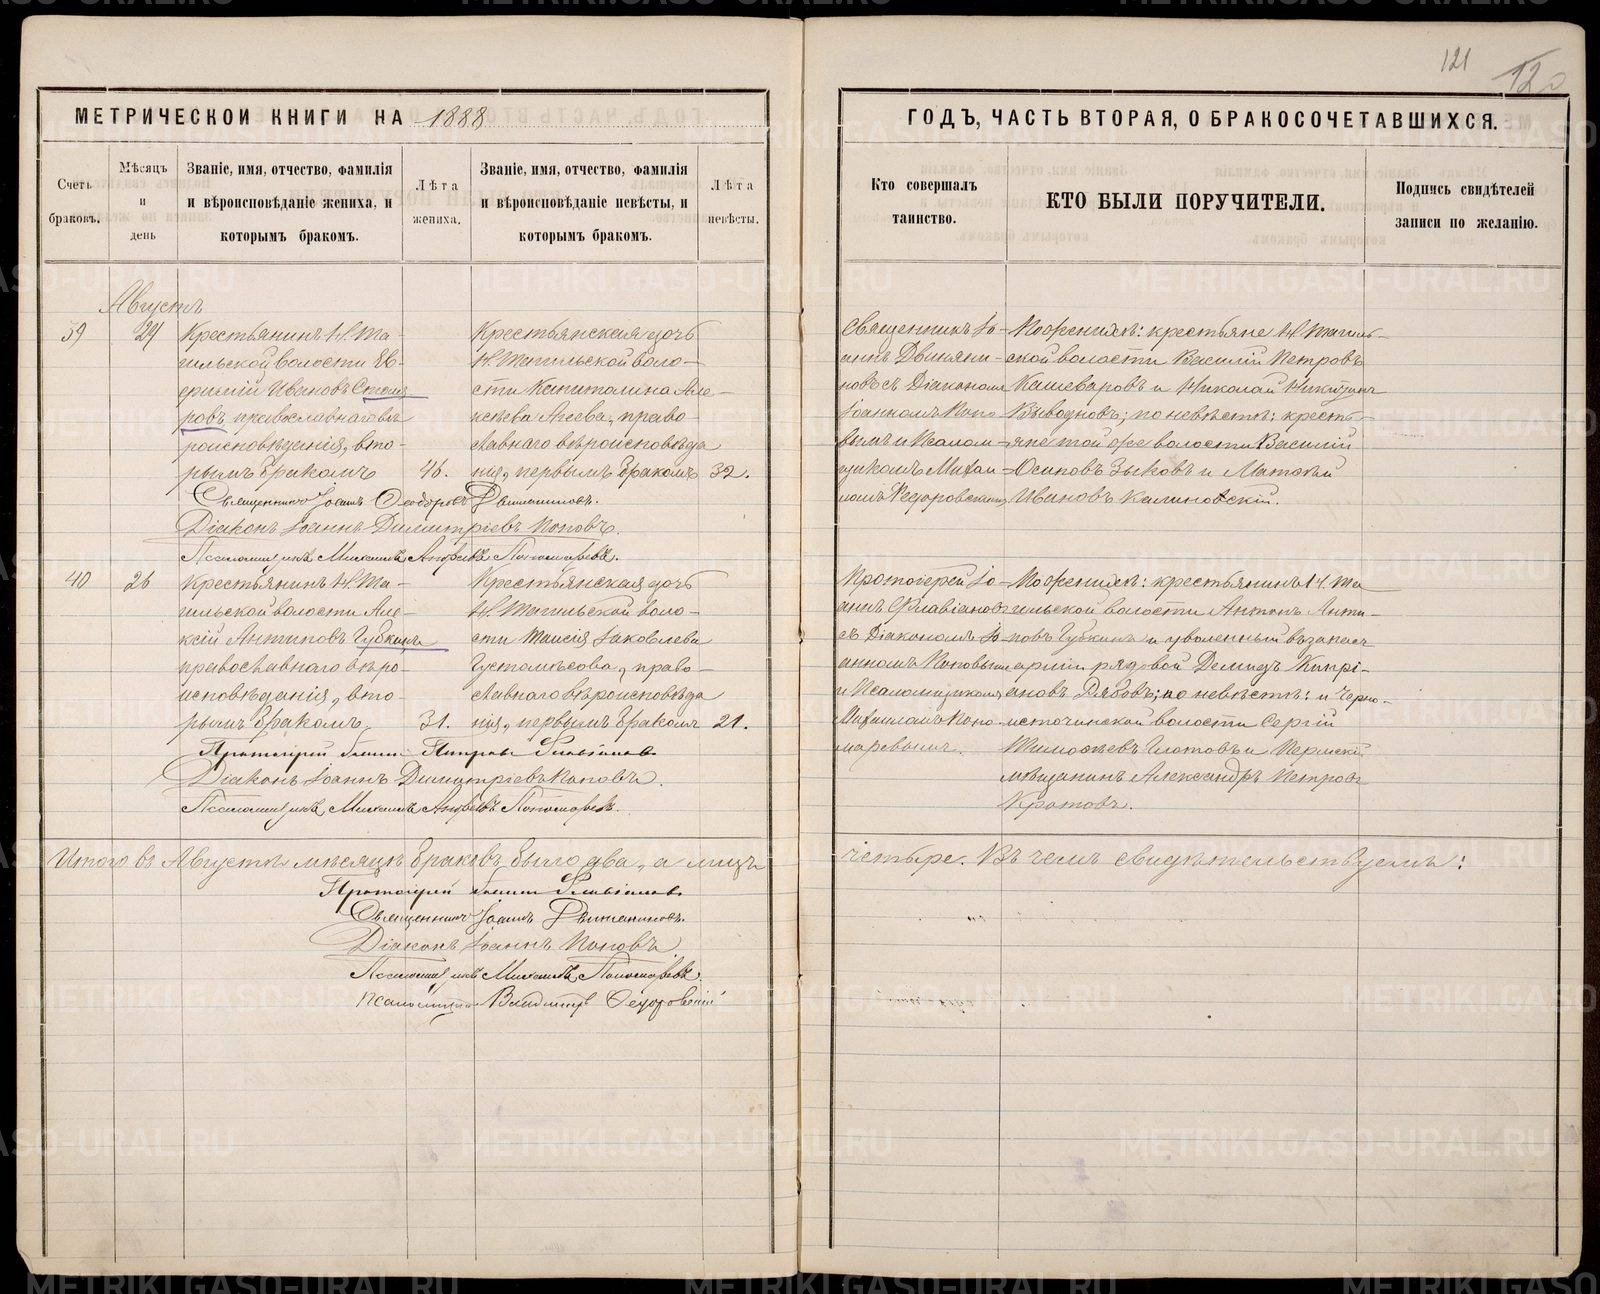 121
120
МЕТРИЧЕСКОЙ КНИГИ НА 1888
ГОДЪ, ЧАСТЬ ВТОРАЯ, О БРАКОСОЧЕТАВШИХСЯ.
Счетъ браковъ.
Мѣсяцъ и день
Званіе, имя, отчество, фамилія
и вѣроисповѣданіе жениха, и
которымъ бракомъ.
Лѣта жениха.
Званіе, имя, отчество, фамилія
и вѣроисповѣданіе невѣсты, и
которымъ бракомъ.
Лѣта невѣсты.
Кто совершалъ
таинство.
КТО БЫЛИ ПОРУЧИТЕЛИ.
Подпись свидѣтелей
записи по желанію.
Августъ
39
24
Крестьянинъ Н. Та-
гильской волости Ев-
Ивановъ Столя-
ровъ, православнаго вѣ-
роисповѣданія, вто-
рымъ бракомъ
46.
Крестьянская дочь
Н. Тагильской воло-
сти Капитолина Але-
ксѣева Агеева, право-
славнаго вѣроисповѣда
нія, первымъ бракомъ
32.
Священникъ Іо-
аннъ Двиняни-
новъ съ Діакономъ
Іоанномъ Попо-
вымъ и Псалом-
щикомъ Михаи-
ломъ
По женихѣ: крестьяне Н. Тагиль-
ской волости Василій Петровъ
Кашеваровъ и Николай Никитинъ
Выводновъ; по невѣстѣ: кресть-
яне той же волости Василій
Осиповъ Зыковъ и Матвѣй
Ивановъ Калиновскій.
Священникъ Іоаннъ Ѳеодоровъ Двиняниновъ.
Діаконъ Іоаннъ Димитріевъ Поповъ.
Псаломщикъ Михаилъ Андреевъ Пономаревъ.
40
26
Крестьянинъ Н. Та-
гильской волости Але-
ксій Антиповъ Губкинъ
православнаго вѣро-
исповѣданія, вто-
рымъ бракомъ
31.
Крестьянская дочь
Н. Тагильской воло-
сти Таисія Іаковлева
Густомѣсова, право-
славнаго вѣроисповѣда
нія, первымъ бракомъ
21.
Протоіерей Іо-
аннъ Флавіановъ
съ Діакономъ Іо-
анномъ Поповымъ
и Псаломщикомъ
Михаиломъ Поно-
маревымъ.
По женихѣ: крестьянинъ Н. Та
гильской волости Антонъ Анти-
повъ Губкинъ и уволенный въ запасъ
арміи рядовой Демидъ Кипрі-
ановъ Рябовъ; по невѣстѣ: и Черно-
источинской волости Сергій
Тимоѳеевъ Глотовъ и Пермскій
мѣщанинъ Александръ Петровъ
Кротовъ.
Протоіерей Іоаннъ Петровъ Флавіановъ
Діаконъ Іоаннъ Димитріевъ Поповъ.
Псаломщикъ Михаилъ Андреевъ Пономаревъ.
Итого въ Августѣ мѣсяцѣ браковъ было два, а лицъ
четыре. Въ чемъ свидѣтельствуемъ:
Протоіерей Іоаннъ Флавіановъ
Священникъ Іоаннъ Двиняниновъ.
Діаконъ Іоаннъ Поповъ
Псаломщикъ Михаилъ Пономаревъ.
Псаломщикъ Владиміръ Ѳедоровскій
METRIKI.GASO-URAL.RU